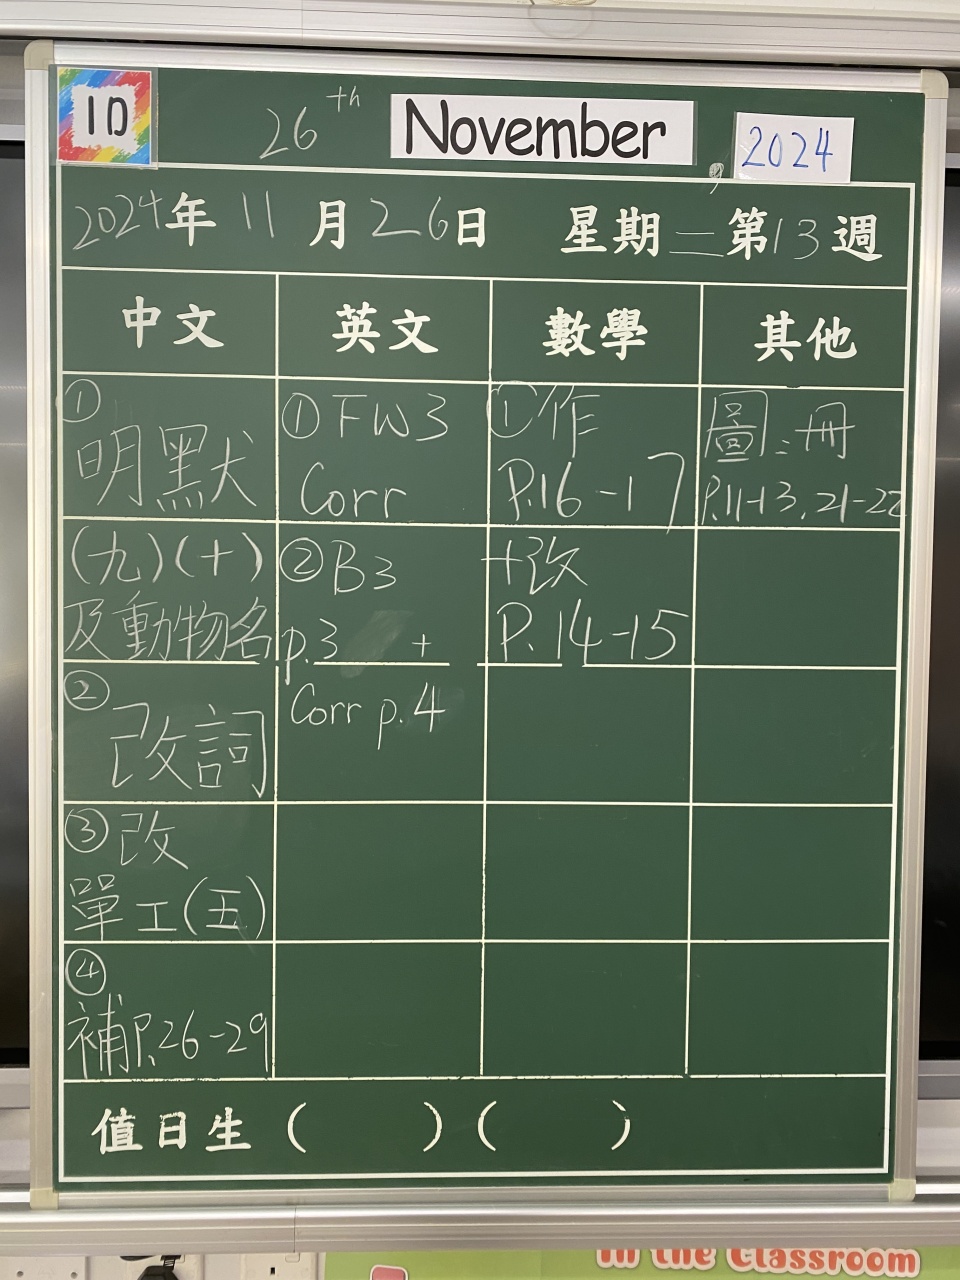 1D
26th November, 2024
2024年11月26日 星期二 第13週
中文 英文 數學 其他
①
明默
(九)(十)
及動物名
②
改詞
③改
單工(五)
④
補P.26-29
①FW3
Corr
②B3
p.3 +
Corr p.4
①作
P.16-17
+改
P.14-15
圖:冊
P.11-13,21-22
值日生 ( ) ( )
In the Classroom